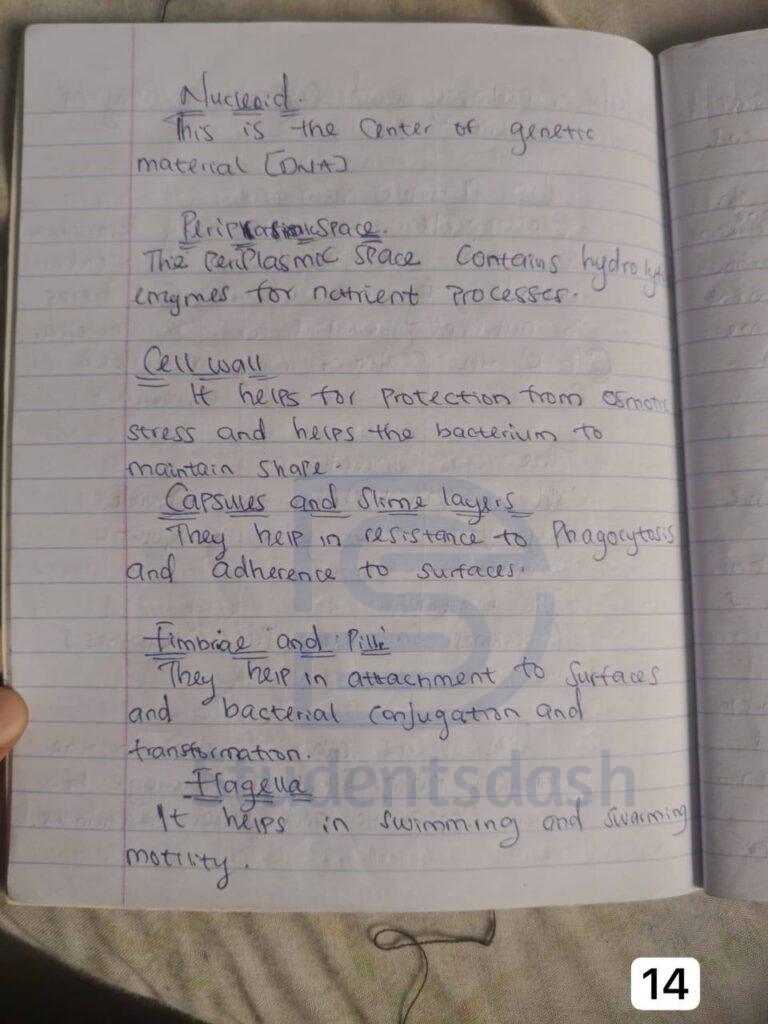 Nucleoid.
This is the center of genetic
material [DNA]
Periplasmic space.
The periplasmic space contains hydrolytic
enzymes for nutrient processes.
Cell wall
It helps for protection from osmotic
stress and helps the bacterium to
maintain shape.
Capsules and slime layers
They help in resistance to phagocytosis
and adherence to surfaces.
Fimbriae and Pilli
They help in attachment to surfaces
and bacterial conjugation and
transformation.
Flagella
It helps in swimming and swarming
motility.
studentsdash
14